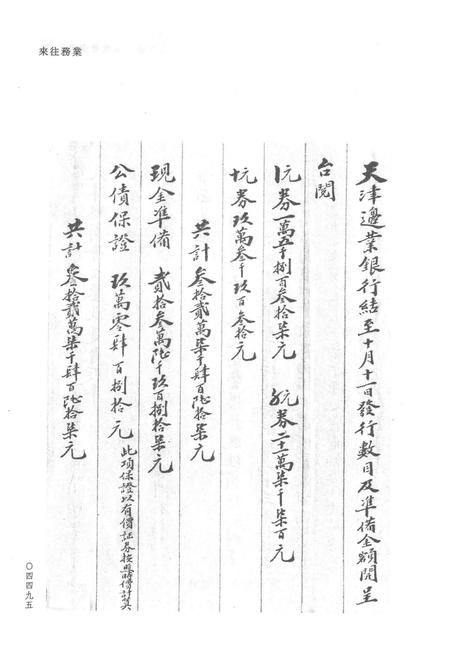 業務往來
天津邊業銀行結至十月十一日發行數目及準備金額開呈
台閱
1元券一萬五千捌百叁拾柒元　5元券二十一萬柒千柒百元
十元券玖萬叁千玖百叁拾元
共計叁拾貳萬柒千肆百陸拾柒元
現金準備　貳拾叁萬陸千玖百捌拾柒元
公債保證　玖萬零肆百捌拾元　此項保證以有價証券按照時價計算
共計叁拾貳萬柒千肆百陸拾柒元
〇四四九五